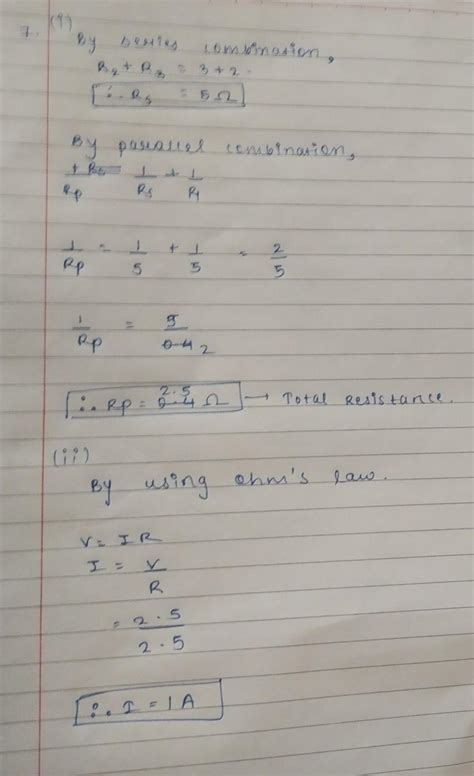 7. (i)
By series combination,
R₂ + R₃ = 3 + 2.
∴ Rs = 5 Ω
By parallel combination,
1/Rp = 1/Rs + 1/R1
1/Rp = 1/5 + 1/5 = 2/5
1/Rp = 5/2
∴ Rp = 2.5 Ω → Total Resistance.
(ii)
By using ohm's law.
V = IR
I = V/R
= 2.5/2.5
∴ I = 1A